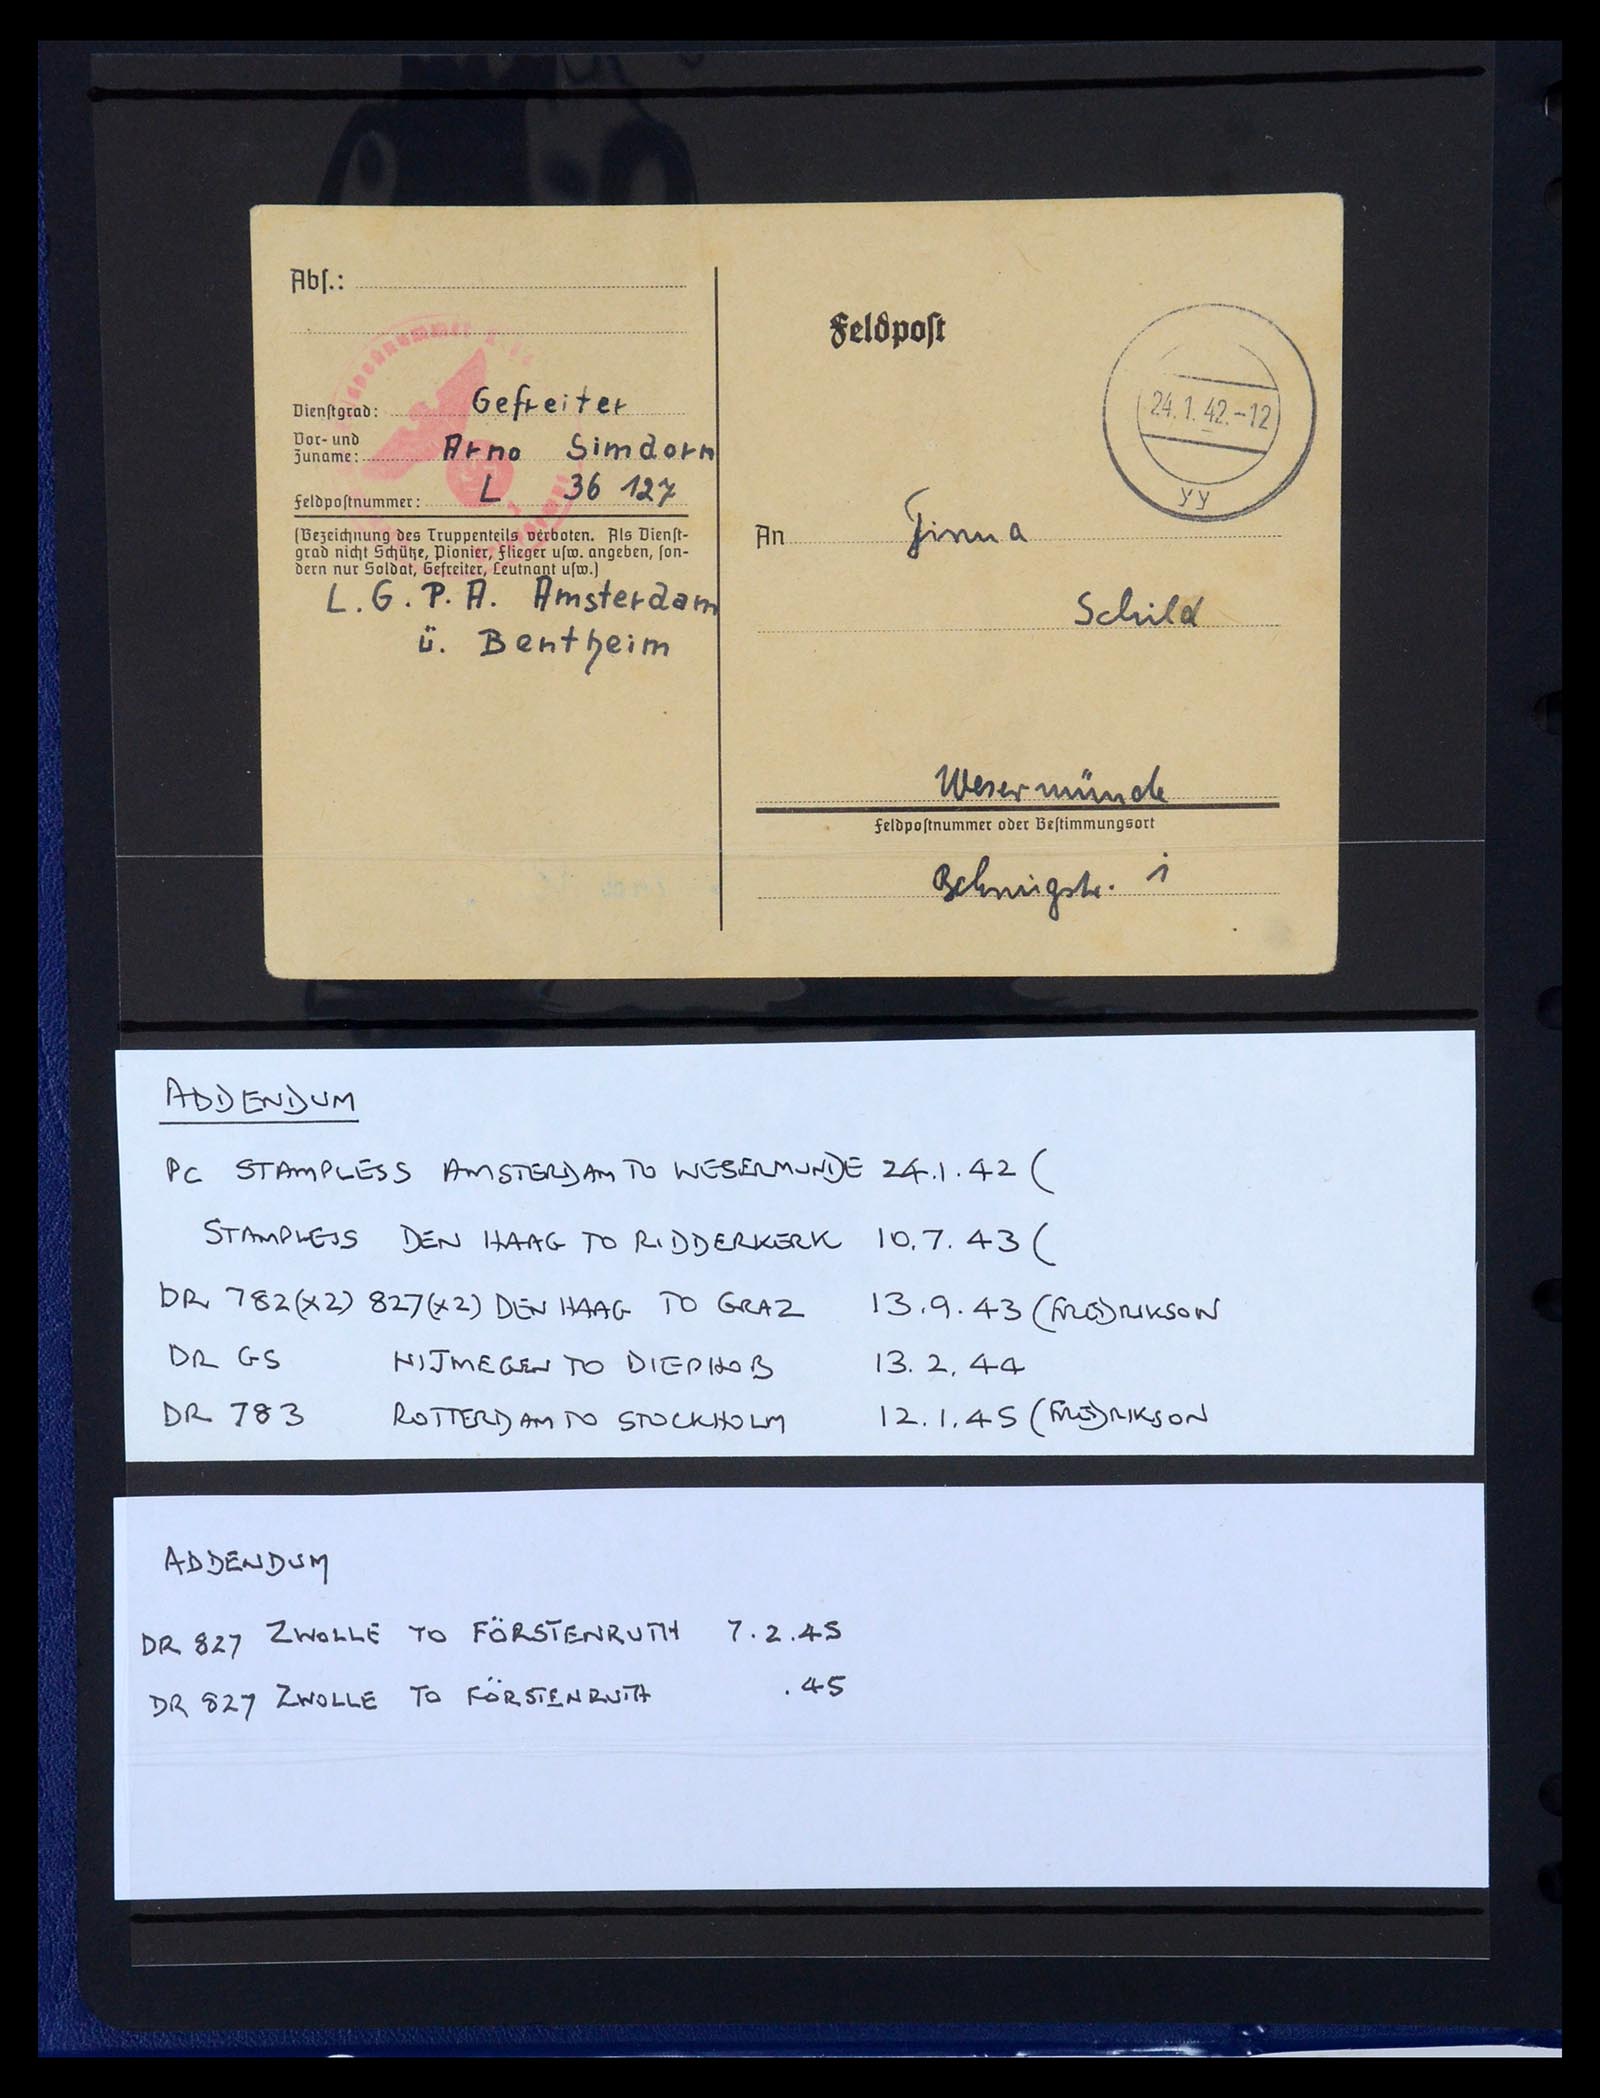 Abs.:
Dienstgrad: Gefreiter
Vor- und
Zuname: Arno Simdorn
Feldpostnummer: L 36 127
(Bezeichnung des Truppenteils verboten. Als Dienst-
grad nicht Schütze, Pionier, Flieger usw. angeben, son-
dern nur Soldat, Gefreiter, Leutnant usw.)
L.G.P.A. Amsterdam
ü. Bentheim
Feldpost
24.1.42.-12
yy
An Firma
Schild
Wesermünde
Feldpostnummer oder Bestimmungsort
1
ADDENDUM
PC STAMPLESS AMSTERDAM TO WESERMUNDE 24.1.42 (
STAMPLESS DEN HAAG TO RIDDERKERK 10.7.43 (
DR 782(x2) 827(x2) DEN HAAG TO GRAZ 13.9.43 (FREDRIKSON
DR GS NIJMEGEN TO DIEPHOB 13.2.44
DR 783 ROTTERDAM TO STOCKHOLM 12.1.45 (FREDRIKSON
ADDENDUM
DR 827 ZWOLLE TO FÖRSTENRUTH 7.2.45
DR 827 ZWOLLE TO FÖRSTENRUTH .45